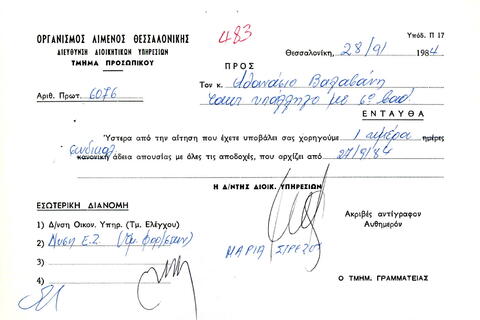 Υπόδ. Π 17
ΟΡΓΑΝΙΣΜΟΣ ΛΙΜΕΝΟΣ ΘΕΣΣΑΛΟΝΙΚΗΣ
483
ΔΙΕΥΘΥΝΣΗ ΔΙΟΙΚΗΤΙΚΩΝ ΥΠΗΡΕΣΙΩΝ
Θεσσαλονίκη, 28/9/ 1984
ΤΜΗΜΑ ΠΡΟΣΩΠΙΚΟΥ
ΠΡΟΣ
Τον κ. Αθανάσιο Βαλαβάνη
Αριθ. Πρωτ. 6076
τακτ υπάλληλο με 6ο βαθ
ΕΝΤΑΥΘΑ
Ύστερα από την αίτηση που έχετε υποβάλει σας χορηγούμε 1 ημέρα ημέρες
συνδικαλ. κανονική άδεια απουσίας με όλες τις αποδοχές, που αρχίζει από 27/9/84
Η Δ/ΝΤΗΣ ΔΙΟΙΚ. ΥΠΗΡΕΣΙΩΝ
ΕΣΩΤΕΡΙΚΗ ΔΙΑΝΟΜΗ
Ακριβές αντίγραφον
1) Δ/νση Οικον. Υπηρ. (Τμ. Ελέγχου)
Αυθημερόν
2) Δ/νση Ε.Ζ. (Τμ. φορ/σεων)
ΜΑΡΙΑ ΣΙΡΕΖΟΥ
3)
4)
Ο ΤΜΗΜ. ΓΡΑΜΜΑΤΕΙΑΣ